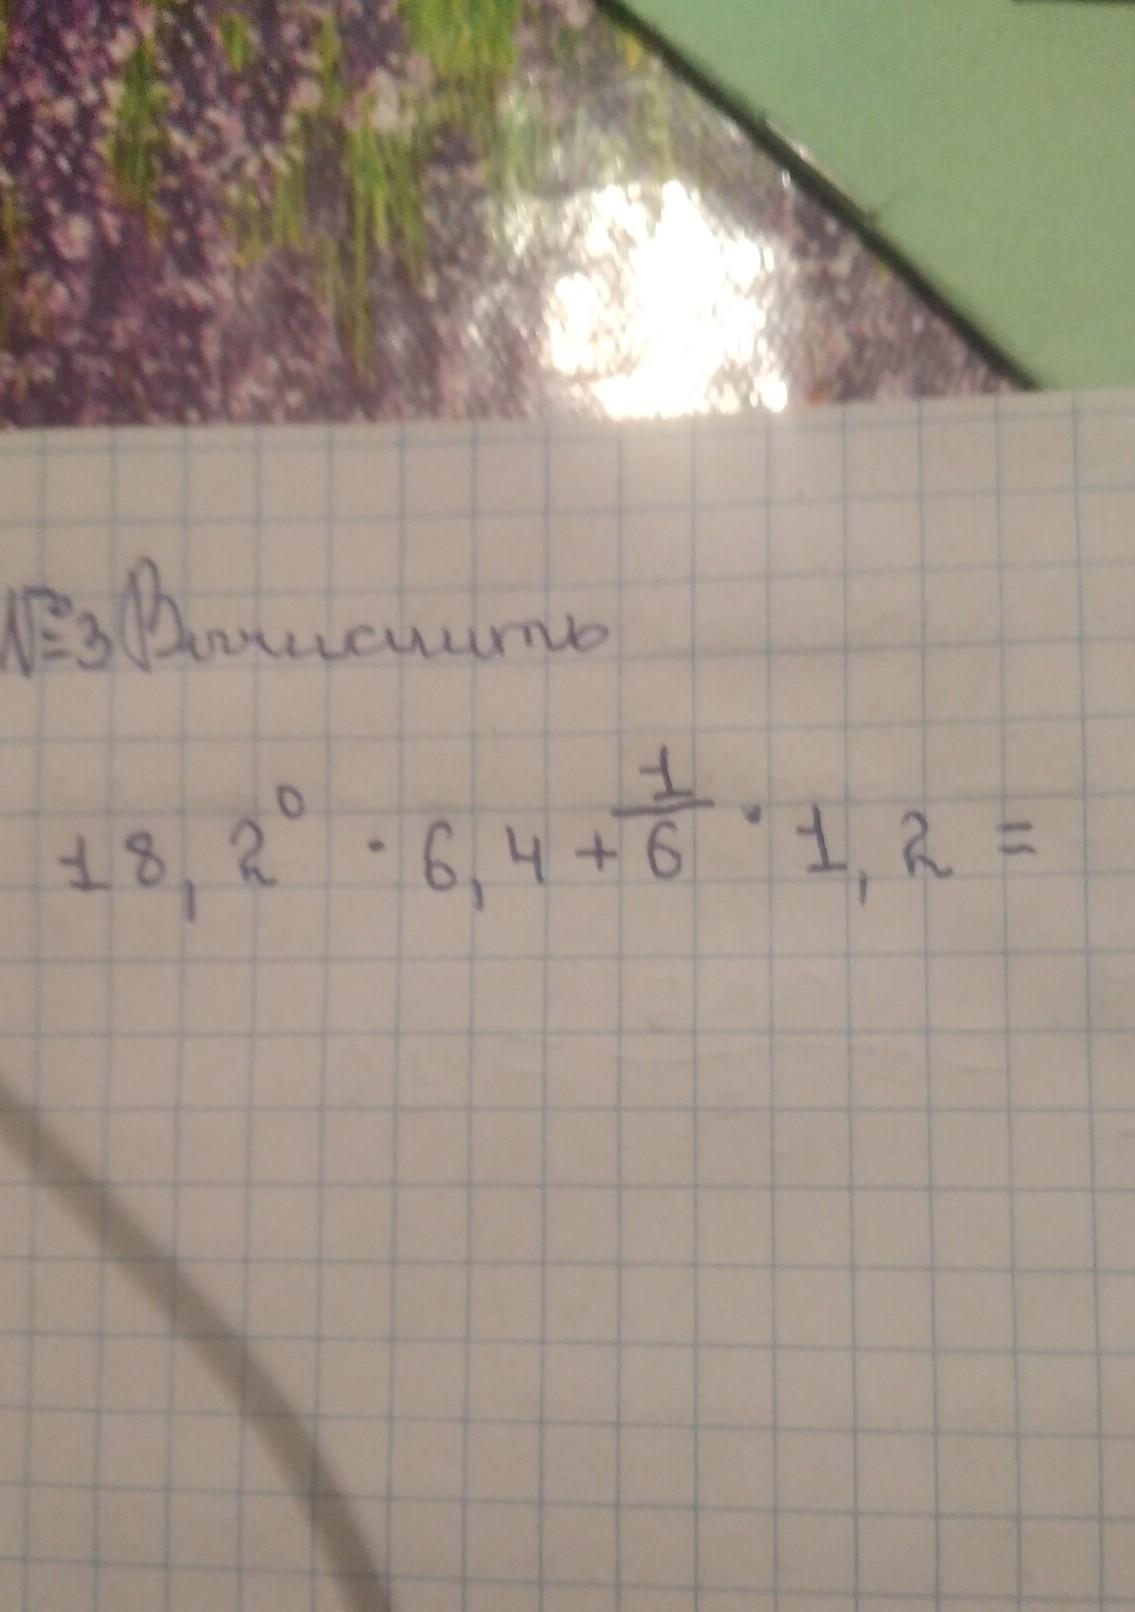 №3 Вычислить
18,2⁰ · 6,4 + 1/6 · 1,2 =